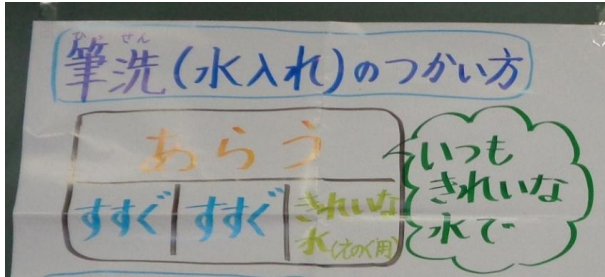 ひっせん
筆洗(水入れ)のつかい方
あらう
すすぐ すすぐ きれいな
水(えのぐ用)
いつも
きれいな
水で